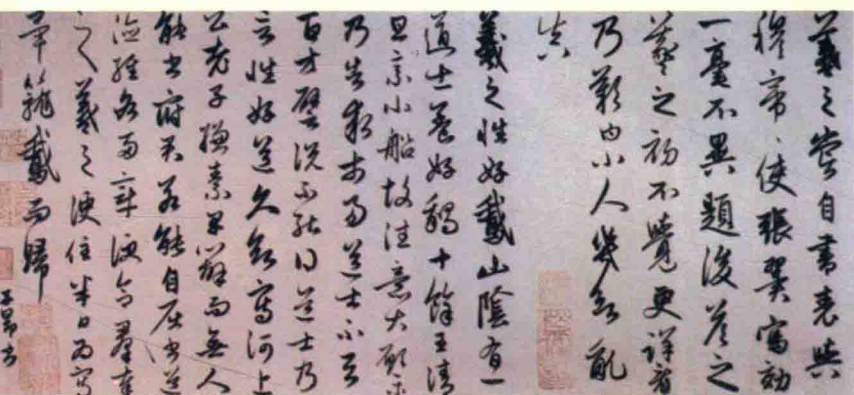 羲之嘗自書表與
穆帝、使張翼寫効
一毫不異題後答之
羲之初不覺更詳看
乃歎曰小人幾欲亂
真
羲之性好鵞山陰有一
道士養好鵝十餘王清
旦乘小船故往意大願樂
乃告求市易道士不與
百方譬說不能得道士乃
言性好道久欲寫河上
公老子縑素早辦而無人
能書府君若能自屈書道
德經各兩章便合羣奉
以羲之便住半日為寫
畢籠鵞而歸
子昂書